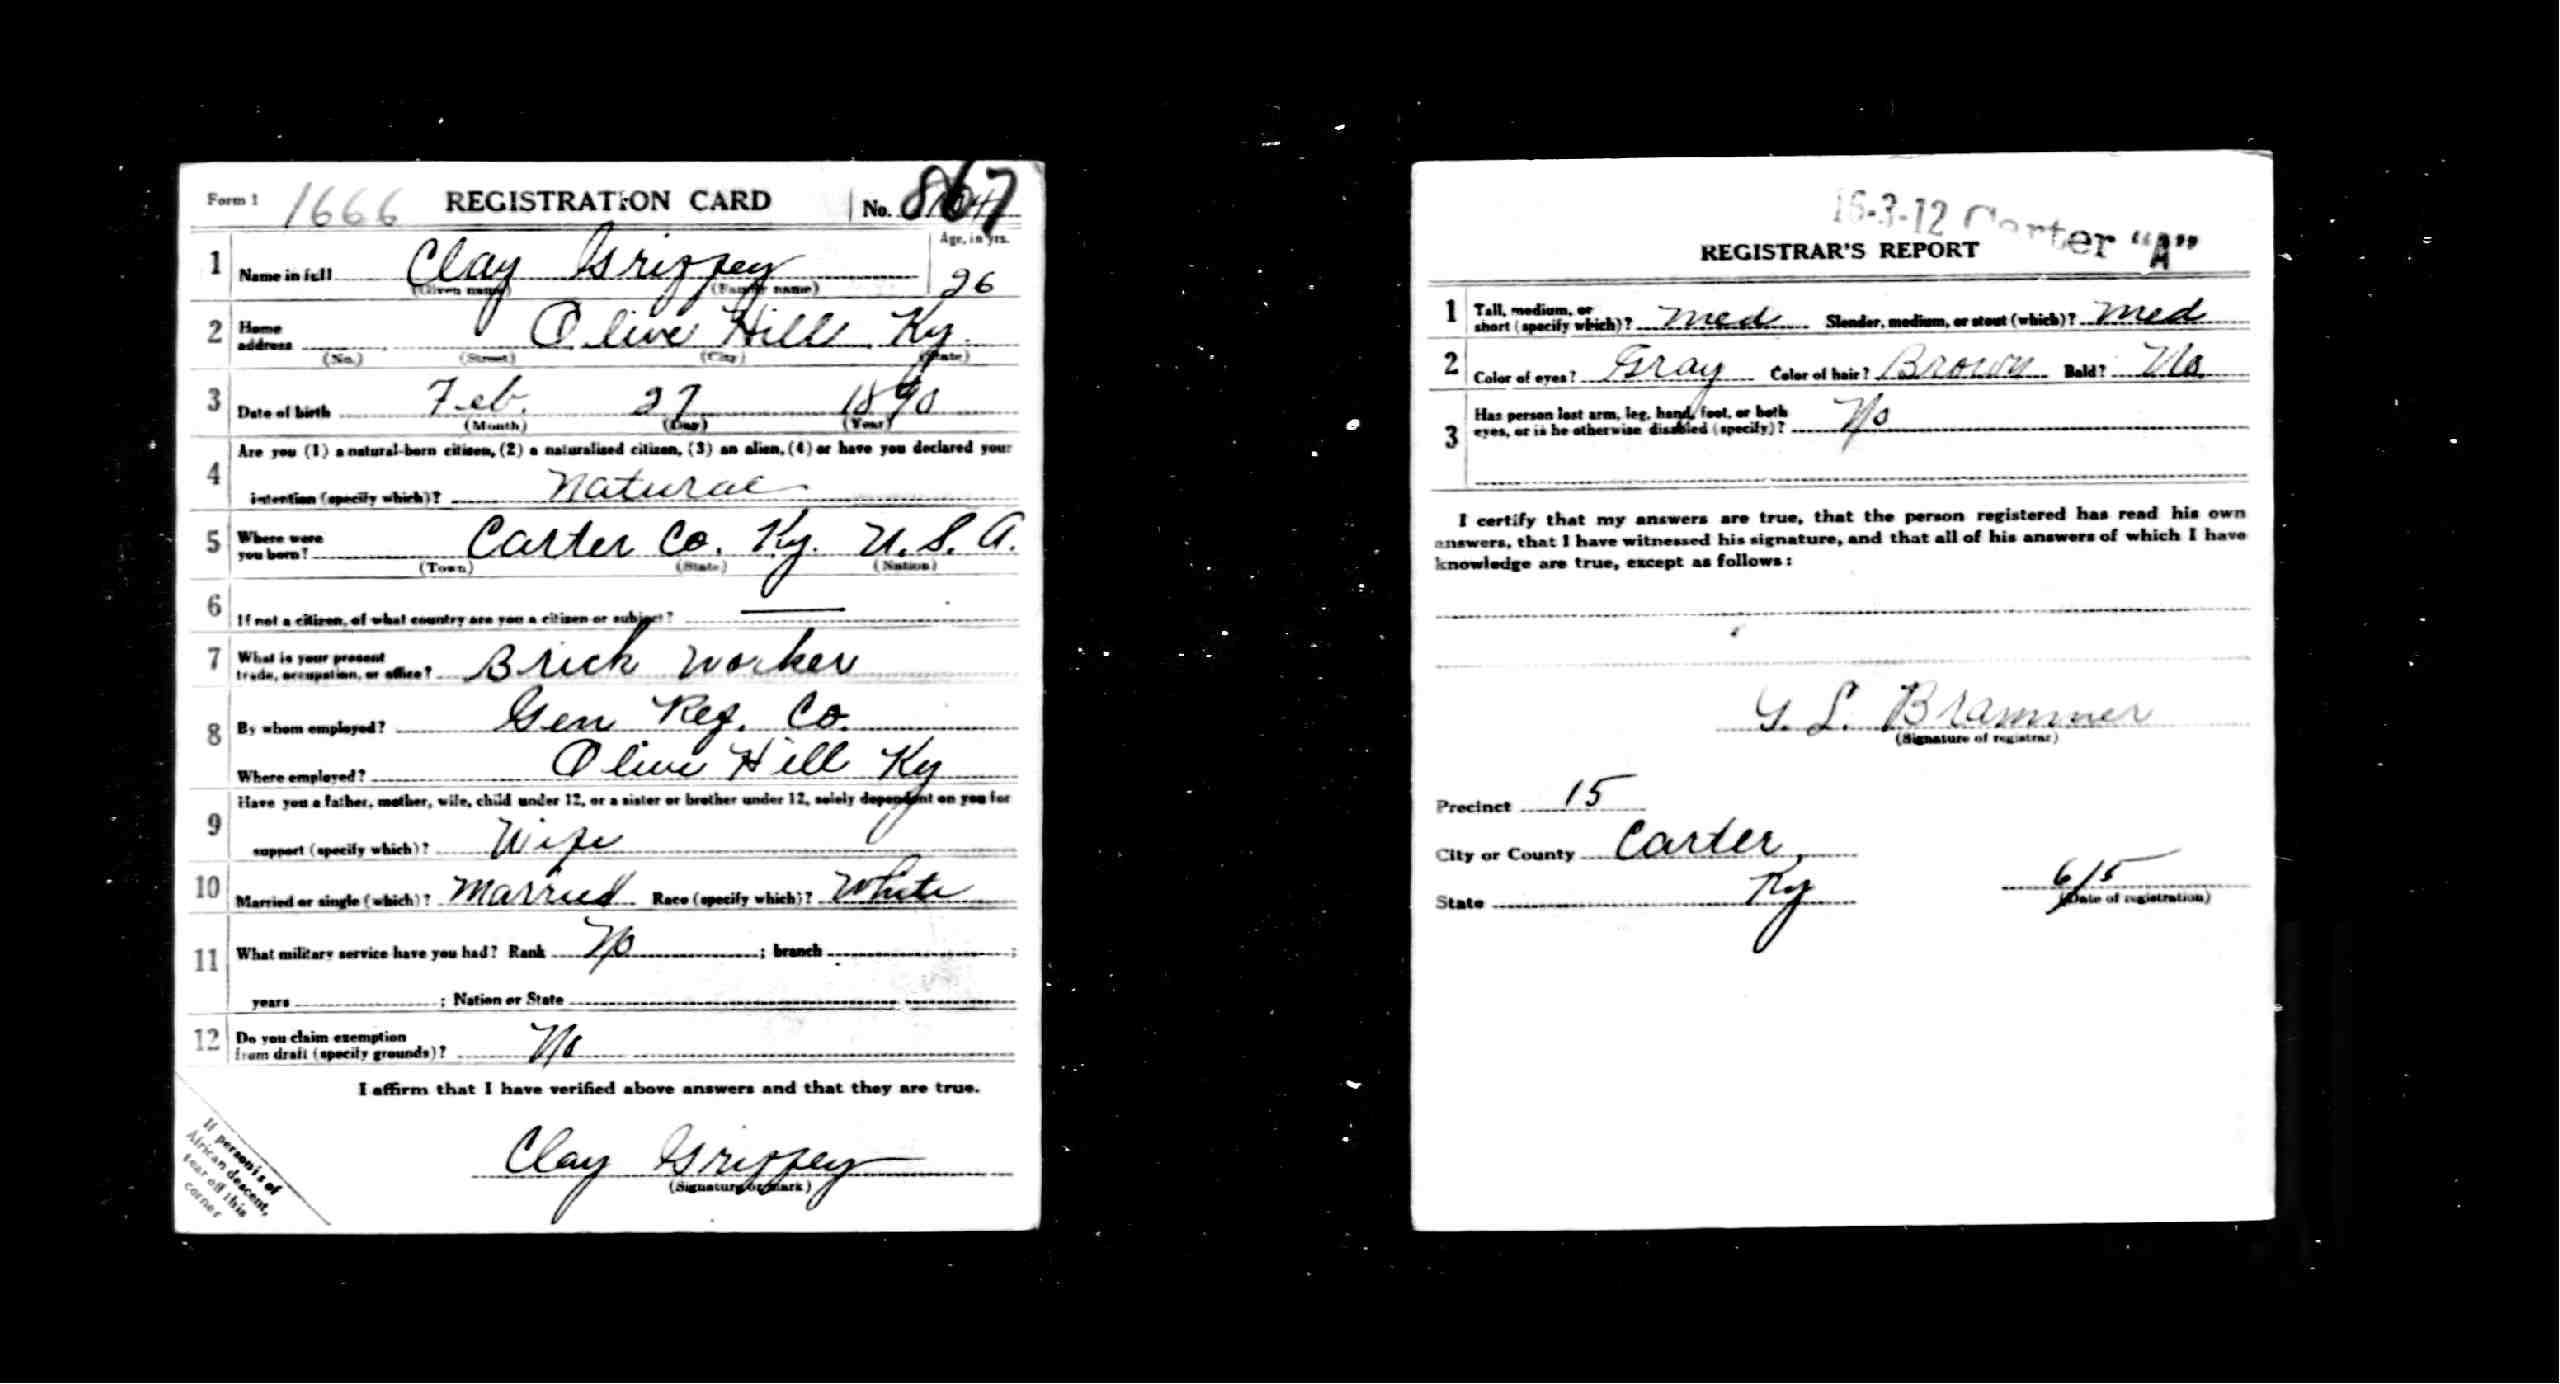 Form 1 1666 REGISTRATION CARD No. 867
1 Name in full Clay Grizzey Age, in yrs. 26
(Given name) (Family name)
2 Home address Olive Hill Ky.
(No.) (Street) (City) (State)
3 Date of birth Feb. 27 1890
(Month) (Day) (Year)
4 Are you (1) a natural-born citizen, (2) a naturalized citizen, (3) an alien, (4) or have you declared your
intention (specify which)? Natural
5 Where were you born? Carter Co. Ky. U.S.A.
(Town) (State) (Nation)
6 If not a citizen, of what country are you a citizen or subject?
7 What is your present trade, occupation, or office? Brick Worker
8 By whom employed? Gen Ref. Co.
Where employed? Olive Hill Ky
9 Have you a father, mother, wife, child under 12, or a sister or brother under 12, solely dependent on you for
support (specify which)? Wife
10 Married or single (which)? Married Race (specify which)? White
11 What military service have you had? Rank No ; branch ;
years ; Nation or State
12 Do you claim exemption from draft (specify grounds)? No
I affirm that I have verified above answers and that they are true.
Clay Grizzey
(Signature or mark)
If person is of
African descent,
tear off this
corner
16-3-12 Carter "A"
REGISTRAR'S REPORT
1 Tall, medium, or short (specify which)? Med Slender, medium, or stout (which)? Med
2 Color of eyes? Gray Color of hair? Brown Bald? No
3 Has person lost arm, leg, hand, foot, or both
eyes, or is he otherwise disabled (specify)? No
I certify that my answers are true, that the person registered has read his own
answers, that I have witnessed his signature, and that all of his answers of which I have
knowledge are true, except as follows:
G. L. Brammer
(Signature of registrar)
Precinct 15
City or County Carter
State Ky 6/5
(Date of registration)